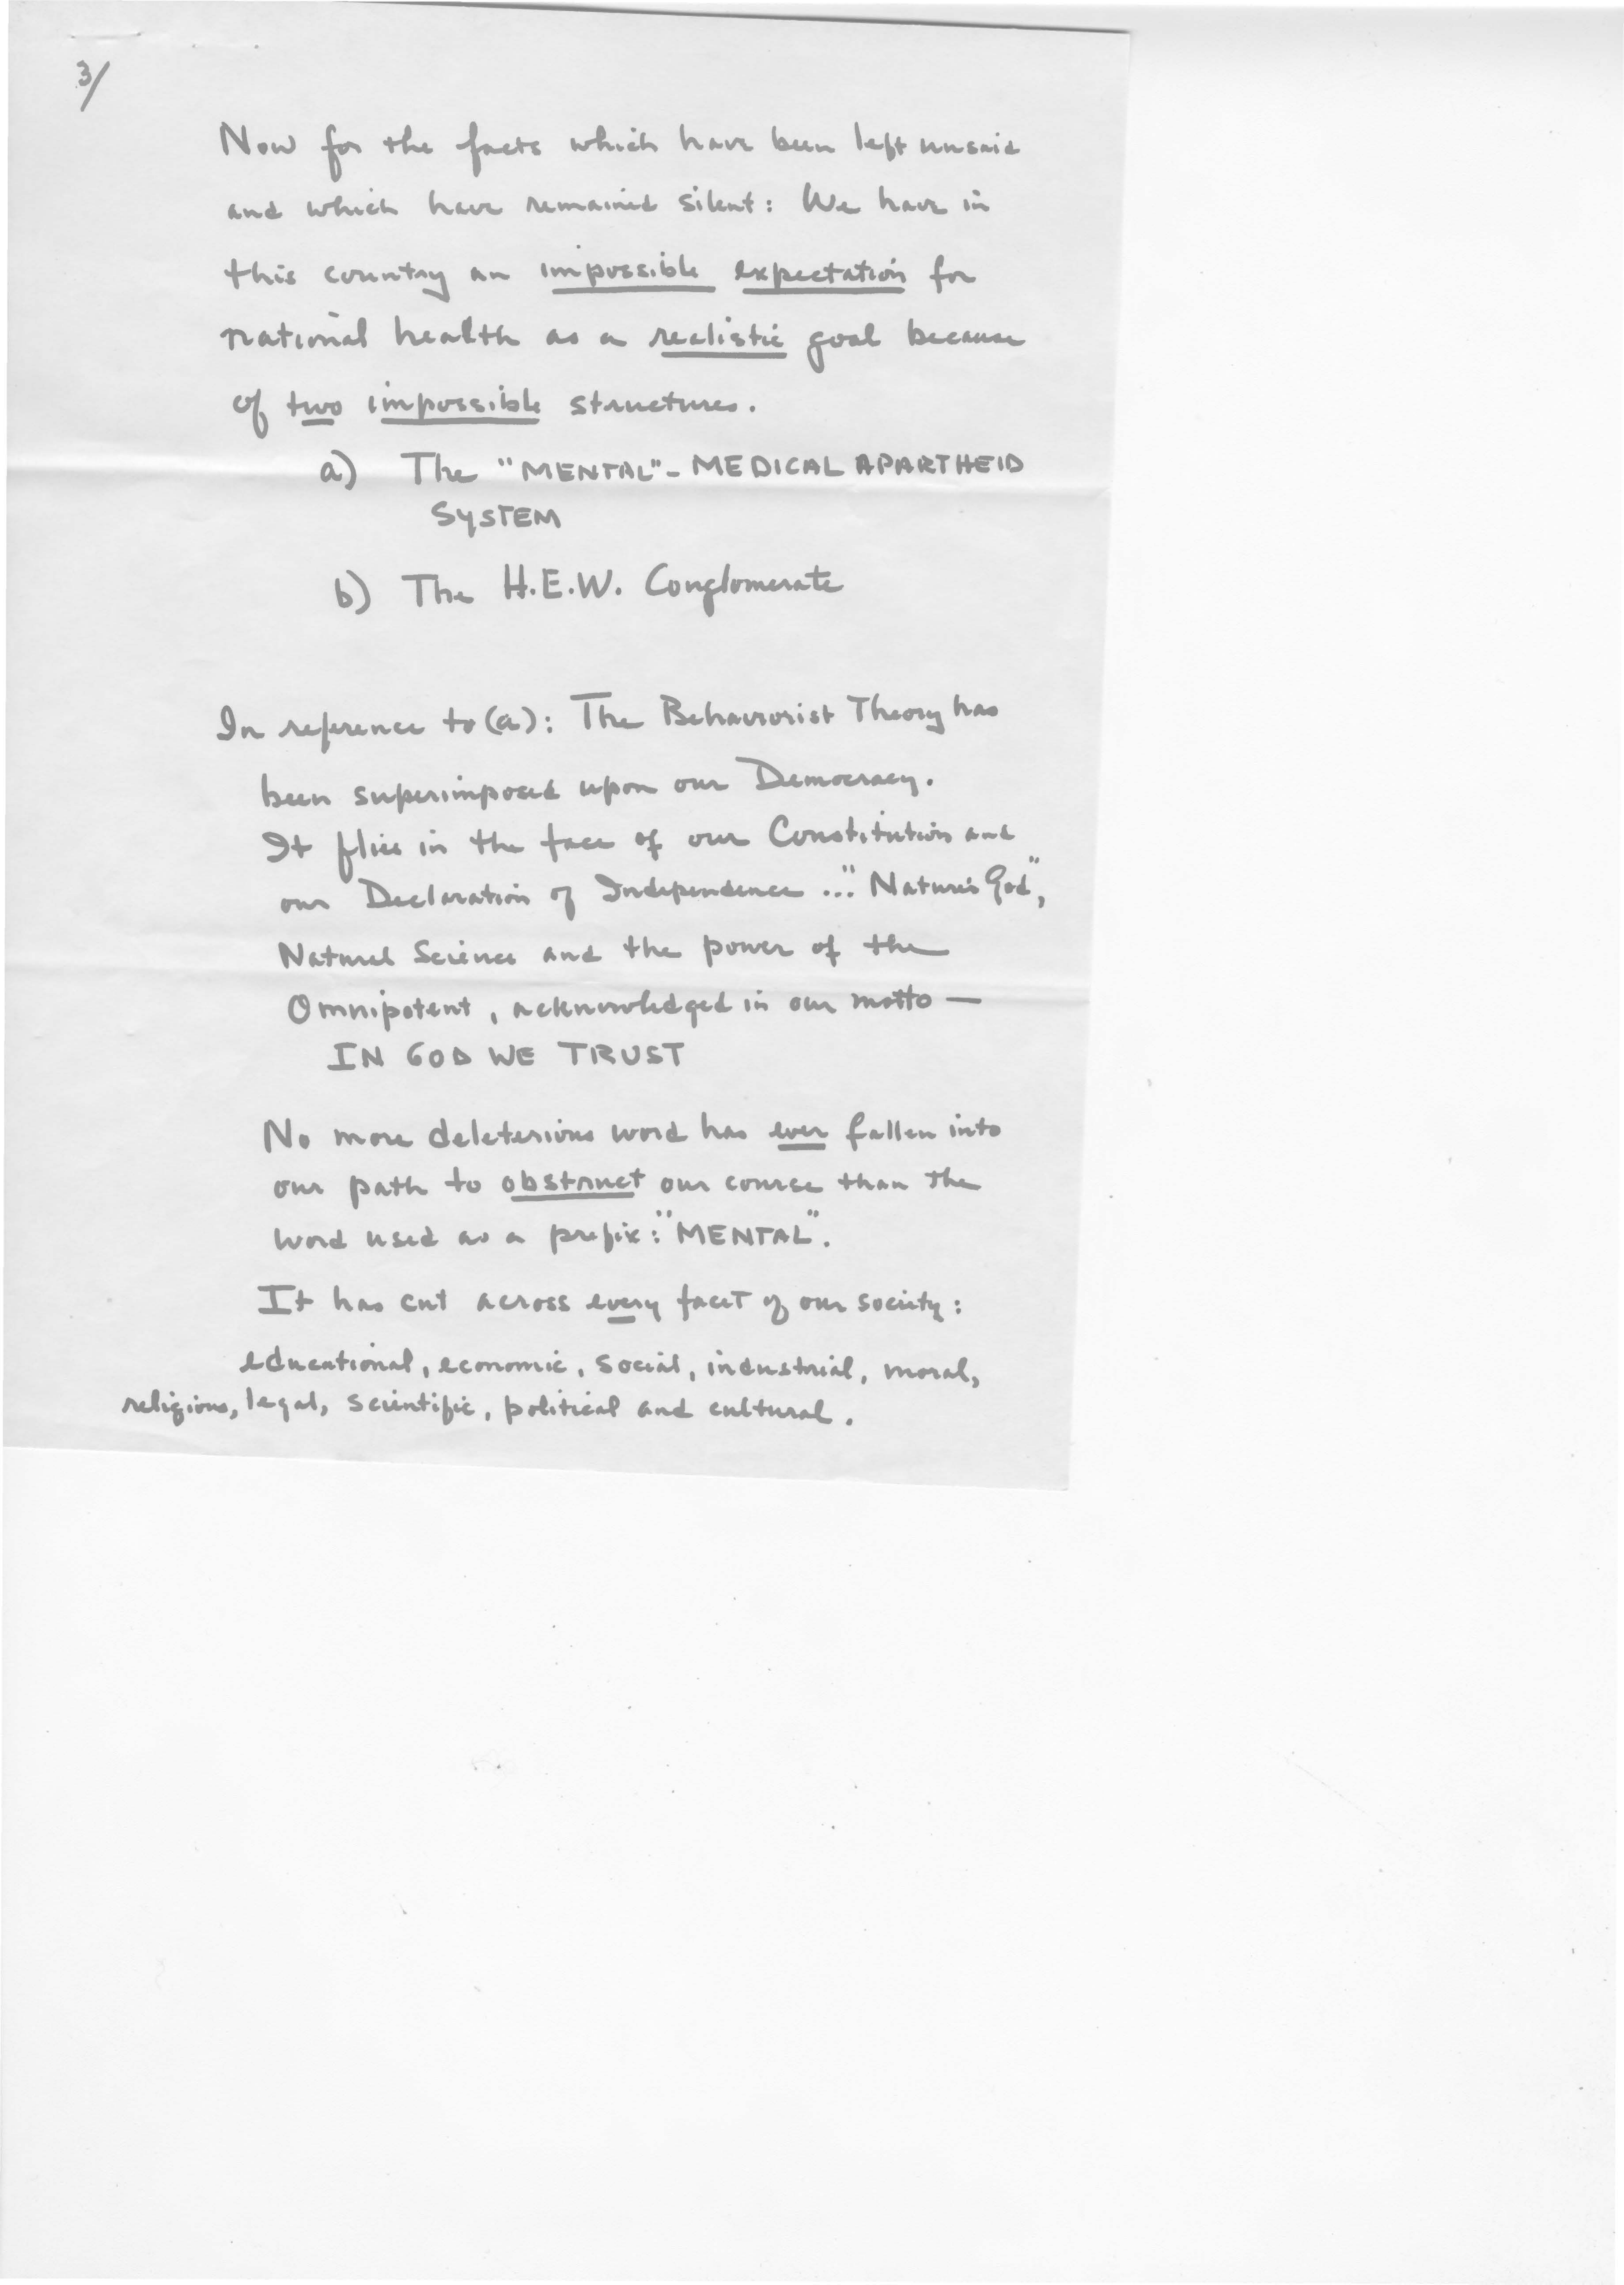 3/
Now for the facts which have been left unsaid
and which have remained silent: We have in
this country an impossible expectation for
national health as a realistic goal because
of two impossible structures.
a) The "MENTAL"- MEDICAL APARTHEID
SYSTEM
b) The H.E.W. Conglomerate
In reference to (a): The Behaviorist Theory has
been superimposed upon our Democracy.
It flies in the face of our Constitution and
our Declaration of Independence ..." Nature's God",
Natural Science and the power of the
Omnipotent, acknowledged in our motto —
IN GOD WE TRUST
No more deleterious word has ever fallen into
our path to obstruct our course than the
word used as a prefix: "MENTAL".
It has cut across every facet of our society:
educational, economic, social, industrial, moral,
religious, legal, scientific, political and cultural.